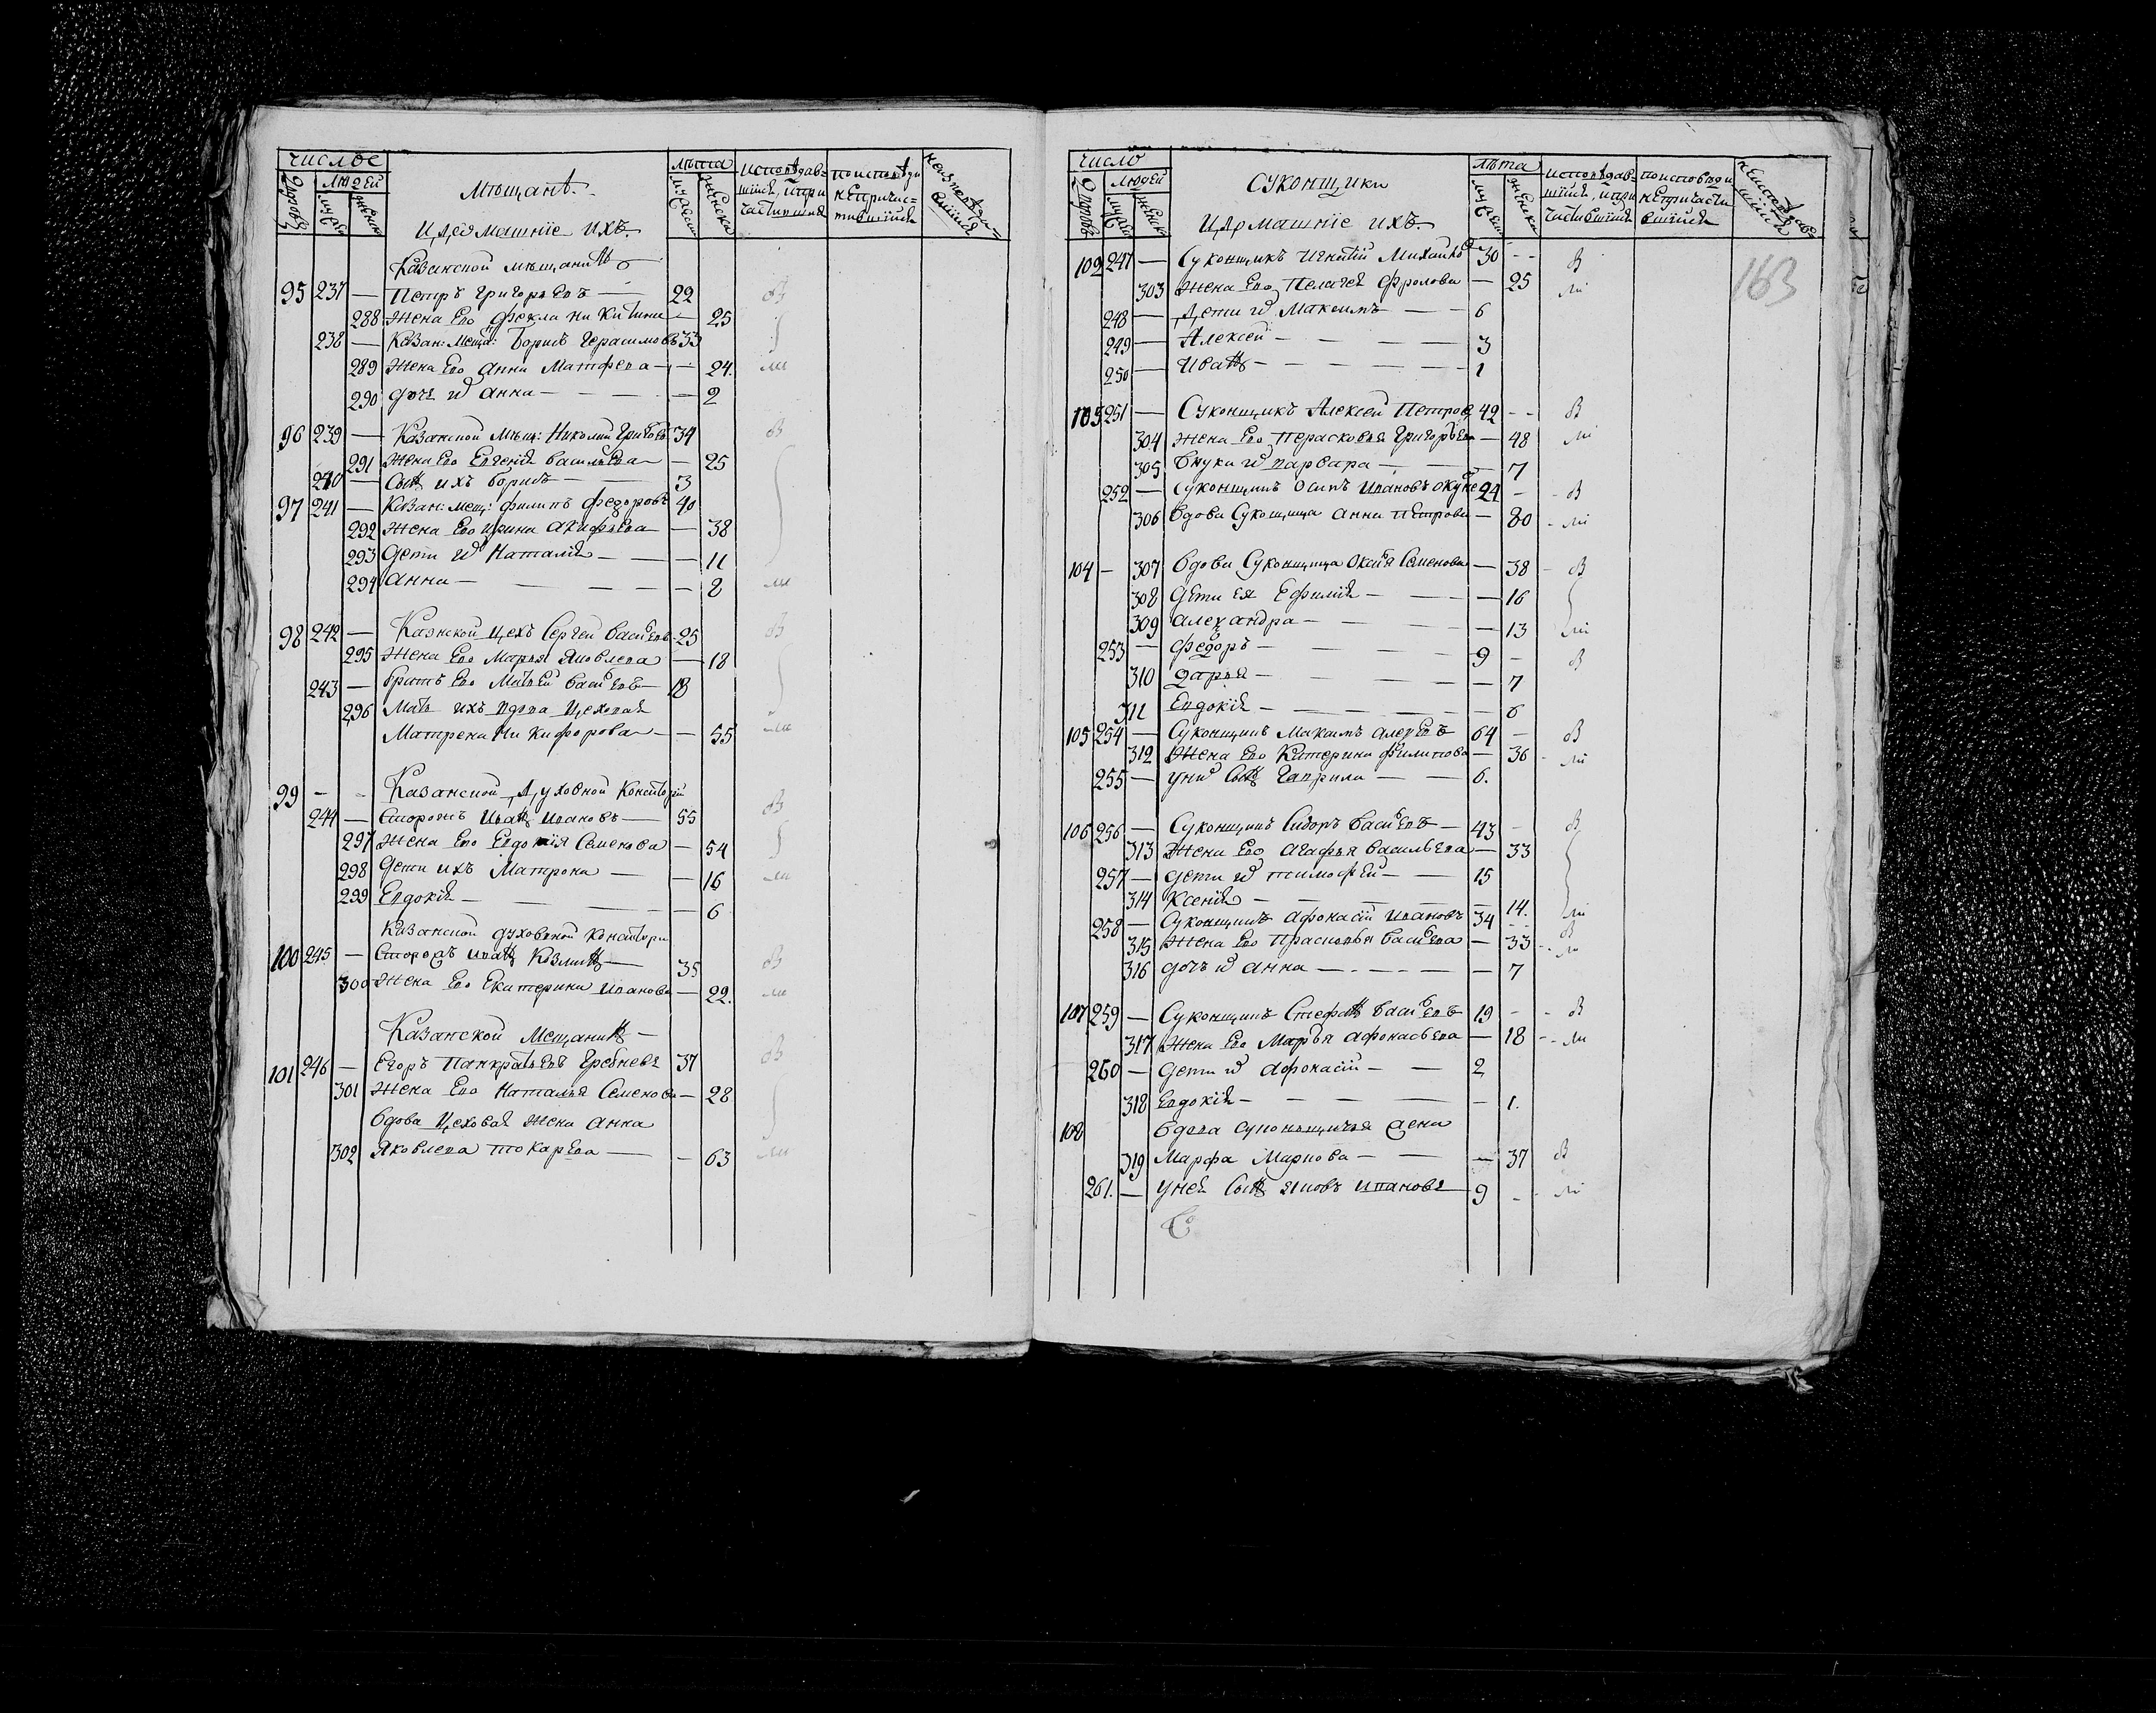 число
людей
дворовъ
мужеск
женск
Мѣщанѣ
и домашніе ихъ.
лѣта
мужеск
женска
исповѣдав-
шіися, и при
частившия
по исповѣди
не причас-
тившіися
Казанской мѣщанинъ
95 237 — Петръ Григорьевъ — 22 в
288 жена его Фекла Никитина — 25
238 — Казан: меща: Борисъ Герасимовъ 33
289 жена его Анна Матфева — 24. ли
290 дочь и Анна — 2
96 239 — Казанской мѣщ: Николай Григорьев 34 в
291 жена его Евгенія Васильева — 25
240 — сынъ ихъ Борисъ — 3
97 241 — Казан: мещ: Филипъ Федоровъ 40
292 жена его Ирина — 38
293 дети и Наталія — 11
294 Анна — 2 ли
98 242 — цехъ Сергей Васильевъ 25 в
295 жена его Марья Яковлева — 18
243 — братъ его Матвей Васильевъ — 18
296 мать ихъ вдова цеховая
Матрена Никифорова — 55 ли
99 — Казанской Духовной Консисторіи
244 — сторожъ Иванъ Ивановъ — 55 в
297 жена его Евдокия Семенова — 54
298 дети ихъ Матрона — 16 ли
299 Евдокія — 6
Казанской духовной консистори
100 245 — сторожъ Иванъ Козминъ — 35 в
300 жена его Екатерина Иванова — 22. ли
Казанской мещанинъ —
101 246 — Егоръ Панкратьевъ Гребневъ 37 в
301 жена его Наталья Семенова — 28
вдова цеховая жена Анна
302 Яковлева Токарева — 63 ли
число
людей
дворовъ
мужеск
женск
суконщики
и домашніе ихъ.
лѣта
мужеск
женска
исповѣдав-
шіися, и при
частившіися
по исповѣди
не причасти
вшіися
163
102 247 — суконщикъ Игнатій Михайлов 30 -- в
303 жена его Пелагея Фролова — 25 ли
248 — дети и Максимъ — 6
249 — Алексей — 3
250 — Иванъ — 1
103 251 — суконщикъ Алексей Петров 42 -- в
304 жена его Перасковья Григорьева — 48 ли
305 внука и Варвара — 7
252 — суконщикъ Осипъ Ивановъ 24 - в
306 вдова суконщица Анна Петрова — 80 ли
104 — 307 вдова суконщица Семенова — 38 - в
308 дети ея — 16
309 Александра — 13 ли
253 — Федоръ — 9 - в
310 Дарья — 7
311 Евдокія — 6
105 254 — суконщикъ Максимъ 64 - в
312 жена его Катерина Филипова — 36 - ли
255 — у них сынъ Гаврила — 6.
106 256 — суконщикъ Сидоръ Васильевъ — 43 - в
313 жена его Агафья Васильева — 33
257 — дети и Тимофей — 15
314 Ксенія — 14. ли
258 — суконщикъ Афонасій Ивановъ 34 в
315 жена его Прасковья Васильева — 33 -- ли
316 дочь и Анна — 7
107 259 — суконщикъ Стефанъ Васильевъ 19 -- в
317 жена его Марья Афонасьева — 18 -- ли
260 — дети и Афонасій — 2
318 Евдокія — 1.
108 вдова суконщичья жена
319 Марфа Маркова — 37 в
261. — у ней сынъ Яковъ Ивановъ 9 - ли